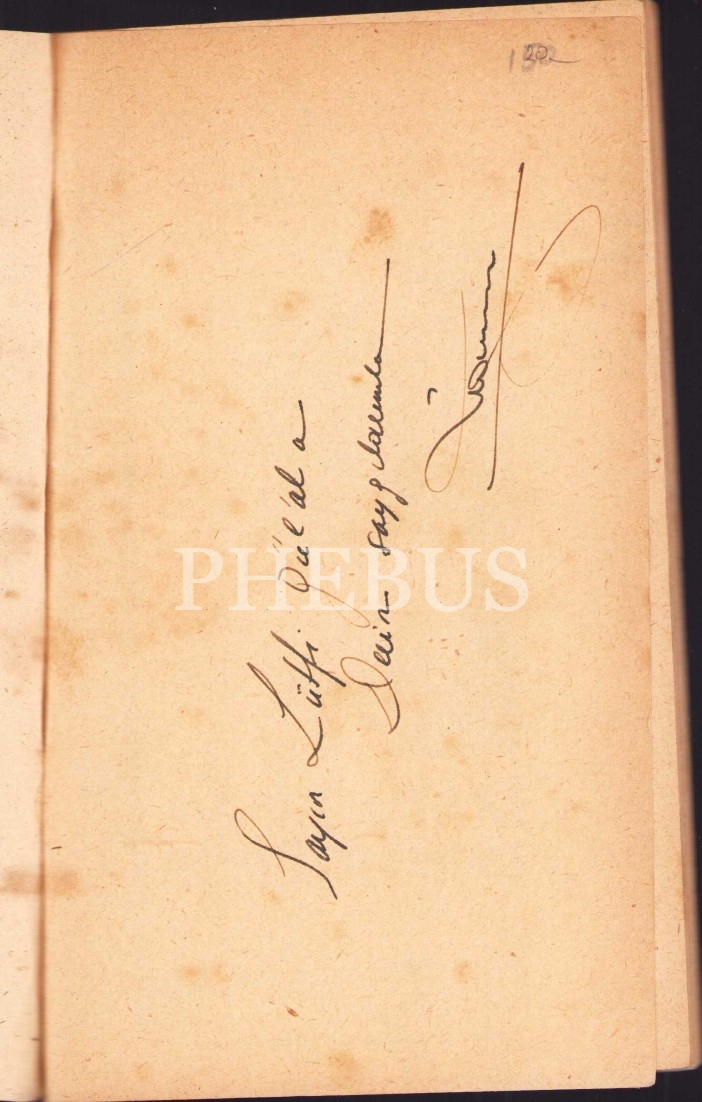 Sayın Lütfi Gül'al'a
Derin saygılarımla
PHEBUS